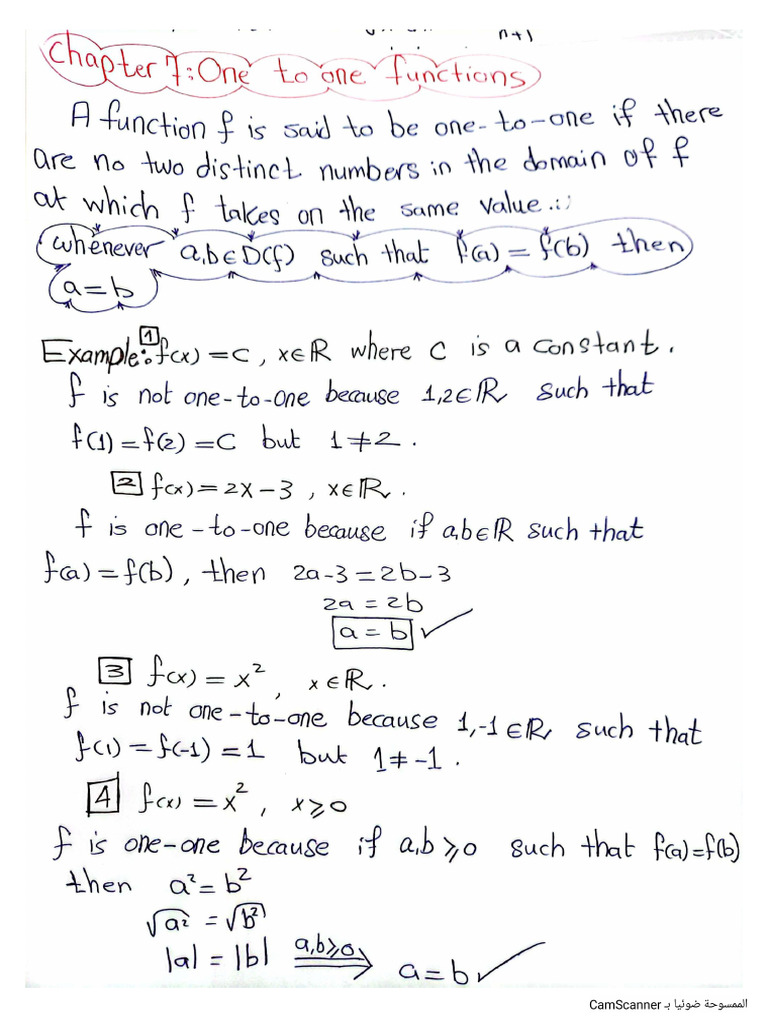 n+1
Chapter 7: One to one functions
A function f is said to be one-to-one if there
are no two distinct numbers in the domain of f
at which f takes on the same value.
whenever a,b∈D(f) such that f(a) = f(b) then
a=b
Example: 1 f(x) = C, x∈ℝ where C is a constant.
f is not one-to-one because 1,2∈ℝ such that
f(1) = f(2) = C but 1≠2.
2 f(x) = 2x-3, x∈ℝ.
f is one-to-one because if a,b∈ℝ such that
f(a) = f(b), then 2a-3 = 2b-3
2a = 2b
a = b ✓
3 f(x) = x², x∈ℝ.
f is not one-to-one because 1,-1∈ℝ such that
f(1) = f(-1) = 1 but 1≠-1.
4 f(x) = x², x⩾0
f is one-one because if a,b⩾0 such that f(a)=f(b)
then a² = b²
√a² = √b²
|a| = |b| a,b⩾0 ⟹ a=b ✓
الممسوحة ضوئيا بـ CamScanner